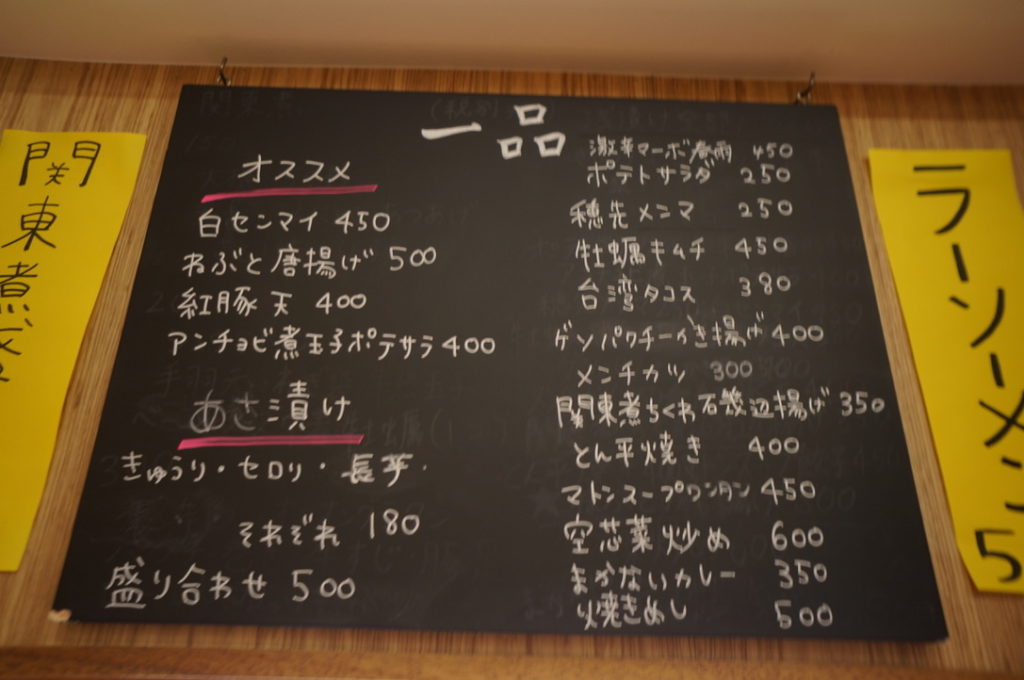 一品
オススメ
白センマイ 450
ねぶと唐揚げ 500
紅豚天 400
アンチョビ煮玉子ポテサラ 400
あさ漬け
きゅうり・セロリ・長芋・
それぞれ 180
盛り合わせ 500
激辛マーボ春雨 450
ポテトサラダ 250
穂先メンマ 250
牡蠣キムチ 450
台湾タコス 380
ゲソパクチーかき揚げ 400
メンチカツ 300
関東煮ちくわ石幾辺揚げ 350
とん平焼き 400
マトンスープワンタン 450
空芯菜炒め 600
まかないカレー 350
焼きめし 500
関東煮
ラーソーメン
5